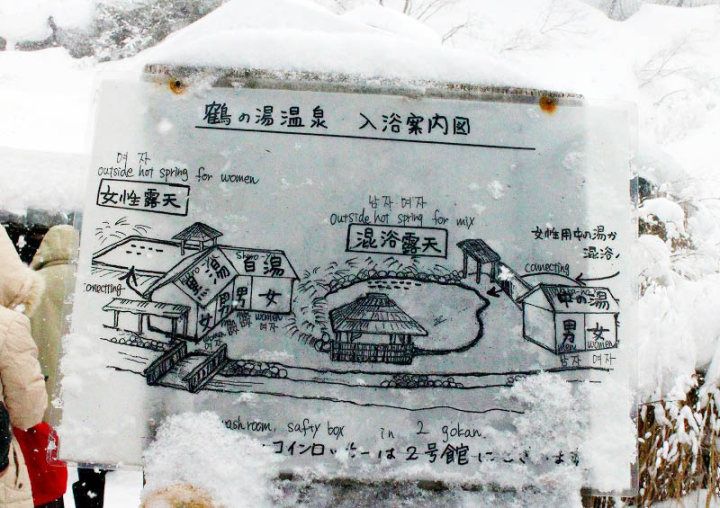 鶴の湯温泉 入浴案内図
여자
outside hot spring for women
女性露天
남자 여자
Outside hot spring for mix
混浴露天
女性用中の湯が
混浴
connecting
connecting
黒湯
Shiro
白湯
女 男
男 女
women
여자
中の湯
男 女
men women
남자 여자
washroom, safty box in 2 gokan.
コインロッカーは2号館にございます